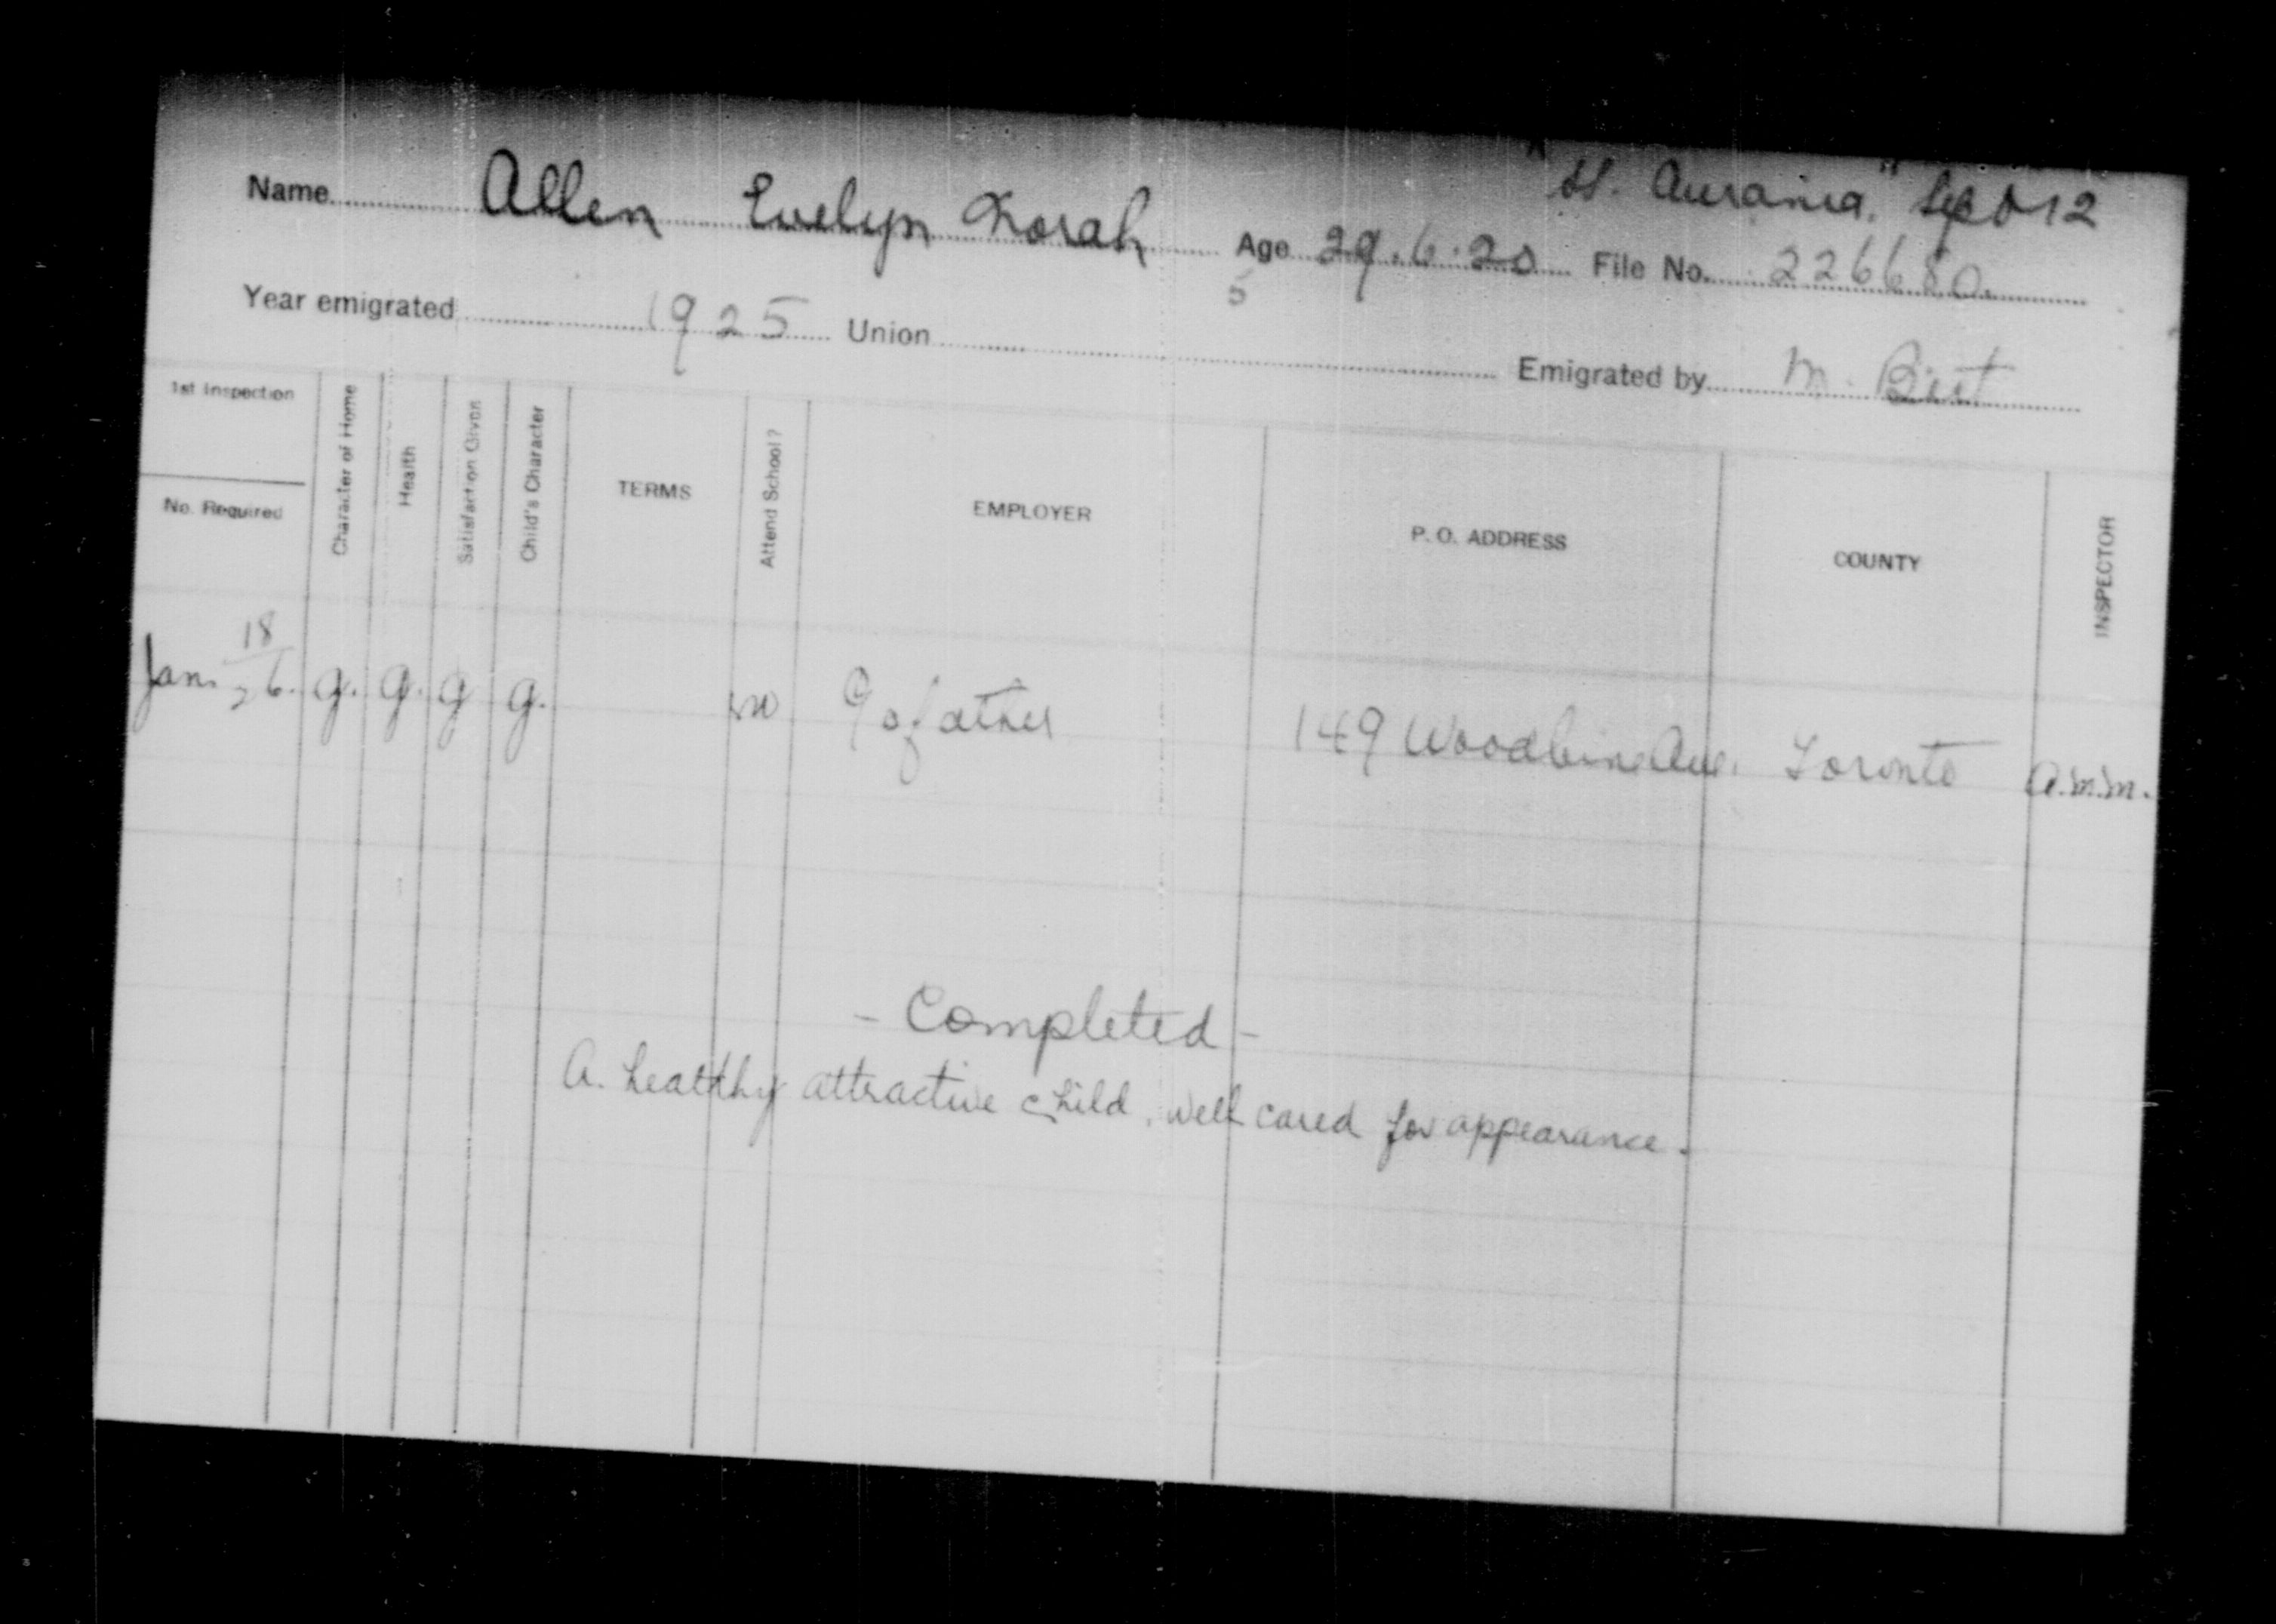 "SS. Aurania." Sept 12
Name Allen Evelyn Norah Age 29.6.20 File No. 226680.
5
Year emigrated 1925 Union Emigrated by M. Birt
1st Inspection
No. Required
Character of Home
Health
Satisfaction Given
Child's Character
TERMS
Attend School?
EMPLOYER
P. O. ADDRESS
COUNTY
INSPECTOR
Jan. 18/26. g. g. g g. no father 149 Woodbine Ave. Toronto A.M.M.
- Completed -
A. healthy attractive child, well cared for appearance.